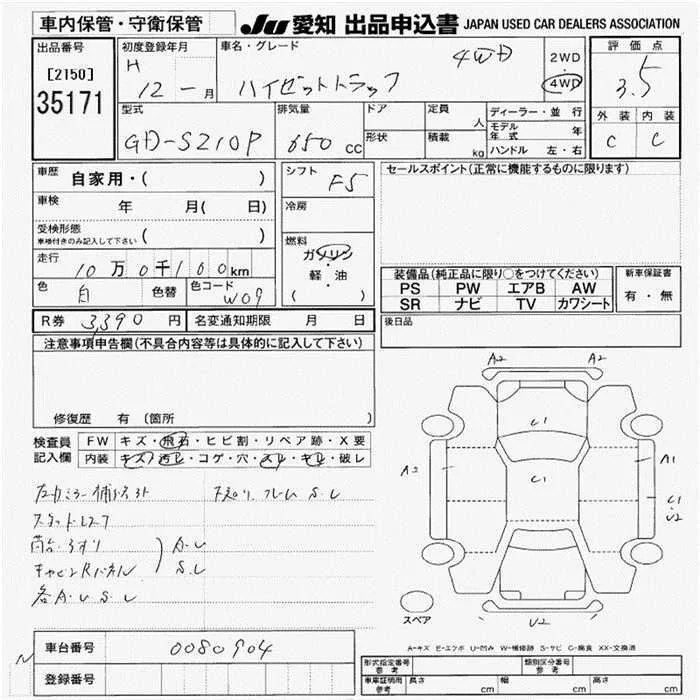 車内保管・守衛保管
JU 愛知 出品申込書 JAPAN USED CAR DEALERS ASSOCIATION
出品番号
[2150]
35171
初度登録年月
H
12 - 月
車名・グレード
4WD
ハイゼットトラック
2WD
4WD
評価点
3.5
外装 内装
C C
型式
GD-S210P
排気量
650 cc
ドア
形状
定員
人
積載
kg
ディーラー・並行
モデル年式 年
ハンドル 左・右
車歴 自家用・( )
車検 年 月( 日)
受検形態
車検付きのみ記入して下さい ( )
走行 10万0千100km
色 白 色替 色コード W09
シフト F5
冷房
燃料
ガソリン
・
軽・油
( )
セールスポイント(正常に機能するものに限ります)
装備品(純正品に限り○をつけてください)
PS PW エアB AW
SR ナビ TV カワシート
新車保証書
有・無
R券 3,390 円 名変通知期限 月 日
後日品
注意事項申告欄(不具合内容等は具体的に記入して下さい)
修復歴 有 〔箇所 〕
検査員記入欄
FW キズ・飛石・ヒビ割・リペア跡・X要
内装 キズ・汚レ・コゲ・穴・スレ・キレ・破レ
A2 A2
C1
A2 A1
C1
C1
U2
U2
スペア
A・U
S・U
各A・U S・U
A-キズ E-エクボ U-凹み W-補修跡 S-サビ C-腐食 XX-交換済
車台番号 0080904
N
登録番号
形式指定番号
参考
類別区分番号
参考
車庫証明用
参考
長さ cm 幅 cm 高さ cm